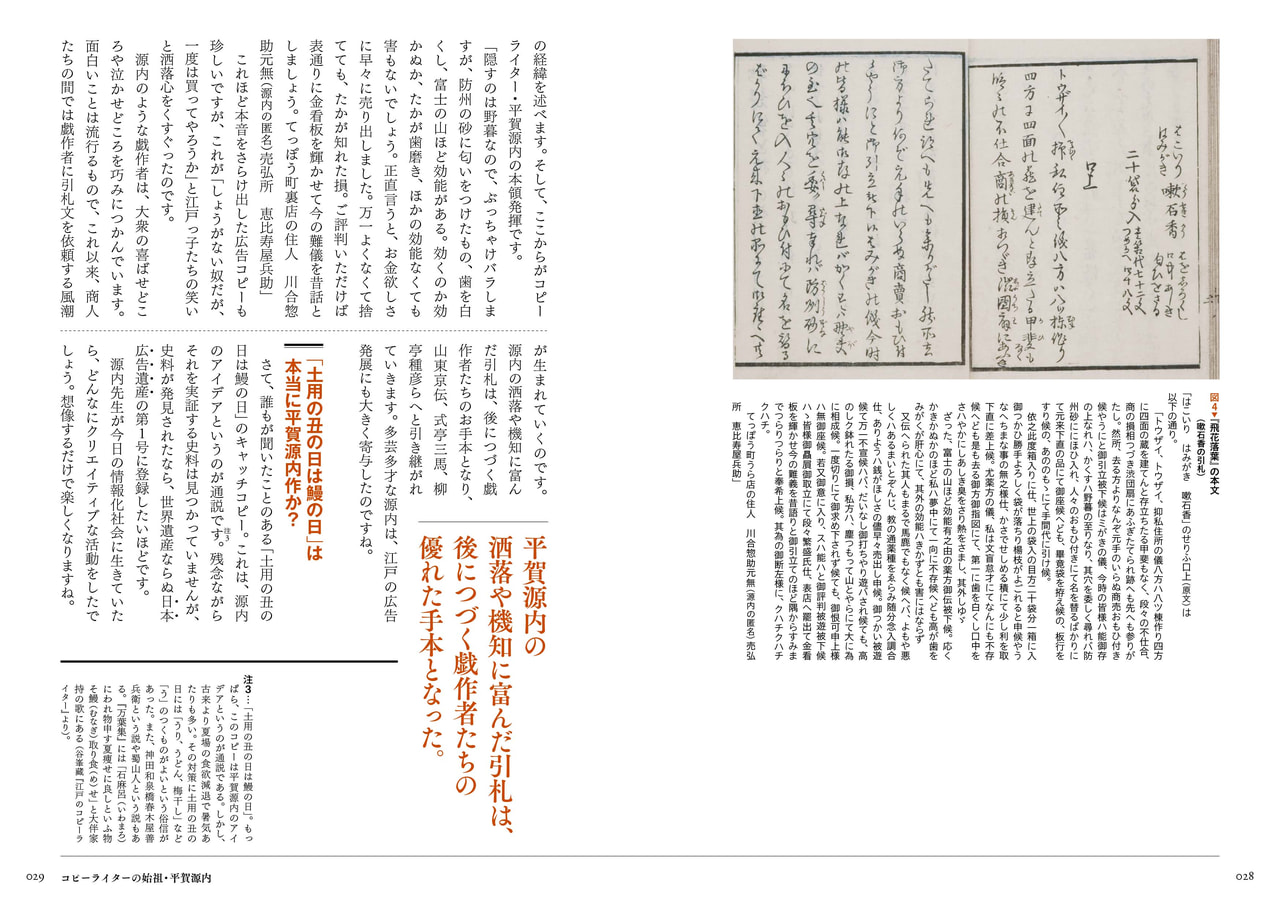 はこいり
はみがき 嗽石香
二十袋分入
口上
図4▼『飛花落葉』の本文
(嗽石香の引札)
「はこいり はみがき 嗽石香」のせりふ口上(原文)は
以下の通り。
「トウザイ、トウザイ、抑私住所の儀八方ハ八ツ棟作り四方
に四面の蔵を建てんと存立たる甲斐もなく、段々の不仕合、
商の損相つづき渋団扇にあふぎたてられ跡へも先へも参りが
たし。然所、去る方よりなんぞ元手のいらぬ商売おもひ付き
候やうにと御引立被下候はミがきの儀、今時の皆様ハ能御存
の上なれハ、かくすハ野暮の至りなり、其穴を委しく尋れバ防
州砂ににほひ入れ、人々のおもひ付きにて名を替るばかりに
て元来下直の品にて御座候へども、畢竟袋を拵え候の、板行を
すり候の、あののもゝにて手間代に引け候。
依之此度箱入りに仕、世上の袋入の目方二十袋分一箱に入
御つかひ勝手よろしく袋が落ちり楊枝がよごれると申候やう
なへちまな事の無之様仕、かさでせしめる積にて少し利を取
下直に差上候。尤薬方の儀、私は文盲怠才にてなんにも不存
候へども是も去る御方御指図にて、第一に歯を白くし口中を
さハやかにしあしき臭をさり熱をさまし、其外しゆ〴〵
ざった、富士の山ほど効能有之由の薬方御伝被下候。応く
かきかぬかのほど私ハ夢中にて一向に不存候へども高が歯を
みがくが肝心にて、其外の効能ハきかずとも害にはならず
又伝へられた其人もまるで馬鹿でもなく候へバ、よもや悪
しくハあるまいとぞんじ、教の通薬種をゑらみ随分念入調合
仕、ありやうハ銭がほしさの儘早々売出し申候。御つかい被遊
候て万一不宣候ハバ、だいなし御打ちやり遊バされ候ても、高
のしク鉢れたる御損、私方ハ、塵つもって山とやらにて大に為
に相成候。一度切りにて御求め下されず候ても、御恨可申上様
ハ無御座候。若又御意に入り、スハ能ハと御評判被遊被下候
ハゝ皆様御贔屓御取立にて段々繁盛氏仕、表店へ罷出て金看
板を輝かせ今の難義を昔語りと御引立てのほど隅からすみま
でつらりつらりと奉希上候。其為の御断左様に、クハチクハチ
クハチ。
てっぽう町うら店の住人 川合惣助元無(源内の匿名)売弘
所 恵比寿屋兵助」
028
の経緯を述べます。そして、ここからがコピー
ライター・平賀源内の本領発揮です。
「隠すのは野暮なので、ぶっちゃけバラしま
すが、防州の砂に匂いをつけたもの、歯を白
くし、富士の山ほど効能がある。効くのか効
かぬか、たかが歯磨き、ほかの効能なくても
害もないでしょう。正直言うと、お金欲しさ
に早々に売り出しました。万一よくなくて捨
てても、たかが知れた損。ご評判いただけば
表通りに金看板を輝かせて今の難儀を昔話と
しましょう。てっぽう町裏店の住人 川合惣
助元無(源内の匿名)売弘所 恵比寿屋兵助」
これほど本音をさらけ出した広告コピーも
珍しいですが、これが「しょうがない奴だが、
一度は買ってやろうか」と江戸っ子たちの笑い
と洒落心をくすぐったのです。
源内のような戯作者は、大衆の喜ばせどこ
ろや泣かせどころを巧みにつかんでいます。
面白いことは流行るもので、これ以来、商人
たちの間では戯作者に引札文を依頼する風潮
が生まれていくのです。
源内の洒落や機知に富ん
だ引札は、後につづく戯
作者たちのお手本となり、
山東京伝、式亭三馬、柳
亭種彦らへと引き継がれ
ていきます。多芸多才な源内は、江戸の広告
発展にも大きく寄与したのですね。
平賀源内の
洒落や機知に富んだ引札は、
後につづく戯作者たちの
優れた手本となった。
「土用の丑の日は鰻の日」は
本当に平賀源内作か?
さて、誰もが聞いたことのある「土用の丑の
日は鰻の日」のキャッチコピー。これは、源内
のアイデアというのが通説です。注3 残念ながら
それを実証する史料は見つかっていませんが、
史料が発見されたなら、世界遺産ならぬ日本
広告遺産の第1号に登録したいほどです。
源内先生が今日の情報化社会に生きていた
ら、どんなにクリエイティブな活動をしたで
しょう。想像するだけで楽しくなりますね。
注3…「土用の丑の日は鰻の日」。もっ
ぱら、このコピーは平賀源内のアイ
デアというのが通説である。しかし、
古来より夏場の食欲減退で暑気あ
たりも多い。その対策に土用の丑の
日には「うり、うどん、梅干し」など
「う」のつくものがよいという俗信が
あった。また、神田和泉橋春木屋善
兵衛という説や蜀山人という説もあ
る。『万葉集』には「石麻呂(いわまろ)
にわれ物申す夏痩せに良しといふ物
そ鰻(むなぎ)取り食(め)せ」と大伴家
持の歌にある(谷峯藏『江戸のコピーラ
イター』より)。
029 コピーライターの始祖・平賀源内